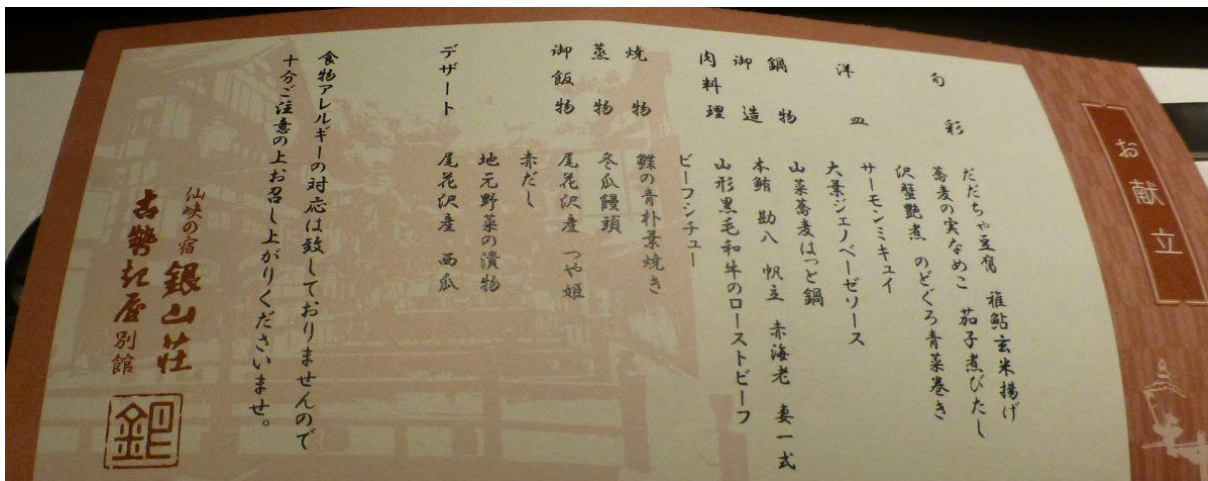 お献立
旬彩 だだちゃ豆腐 稚鮎玄米揚げ
蕎麦の実なめこ 茄子煮びたし
沢蟹艶煮 のどぐろ青菜巻き
洋皿 サーモンミキュイ
大葉ジェノベーゼソース
鍋物 山菜蕎麦はっと鍋
御造 本鮪 勘八 帆立 赤海老 妻一式
肉料理 山形黒毛和牛のローストビーフ
ビーフシチュー
焼物 鰈の青朴葉焼き
蒸物 冬瓜饅頭
御飯物 尾花沢産 つや姫
赤だし
地元野菜の漬物
デザート 尾花沢産 西瓜
食物アレルギーの対応は致しておりませんので
十分ご注意の上お召し上がりくださいませ。
仙峡の宿 銀山荘
古勢起屋別館
銀